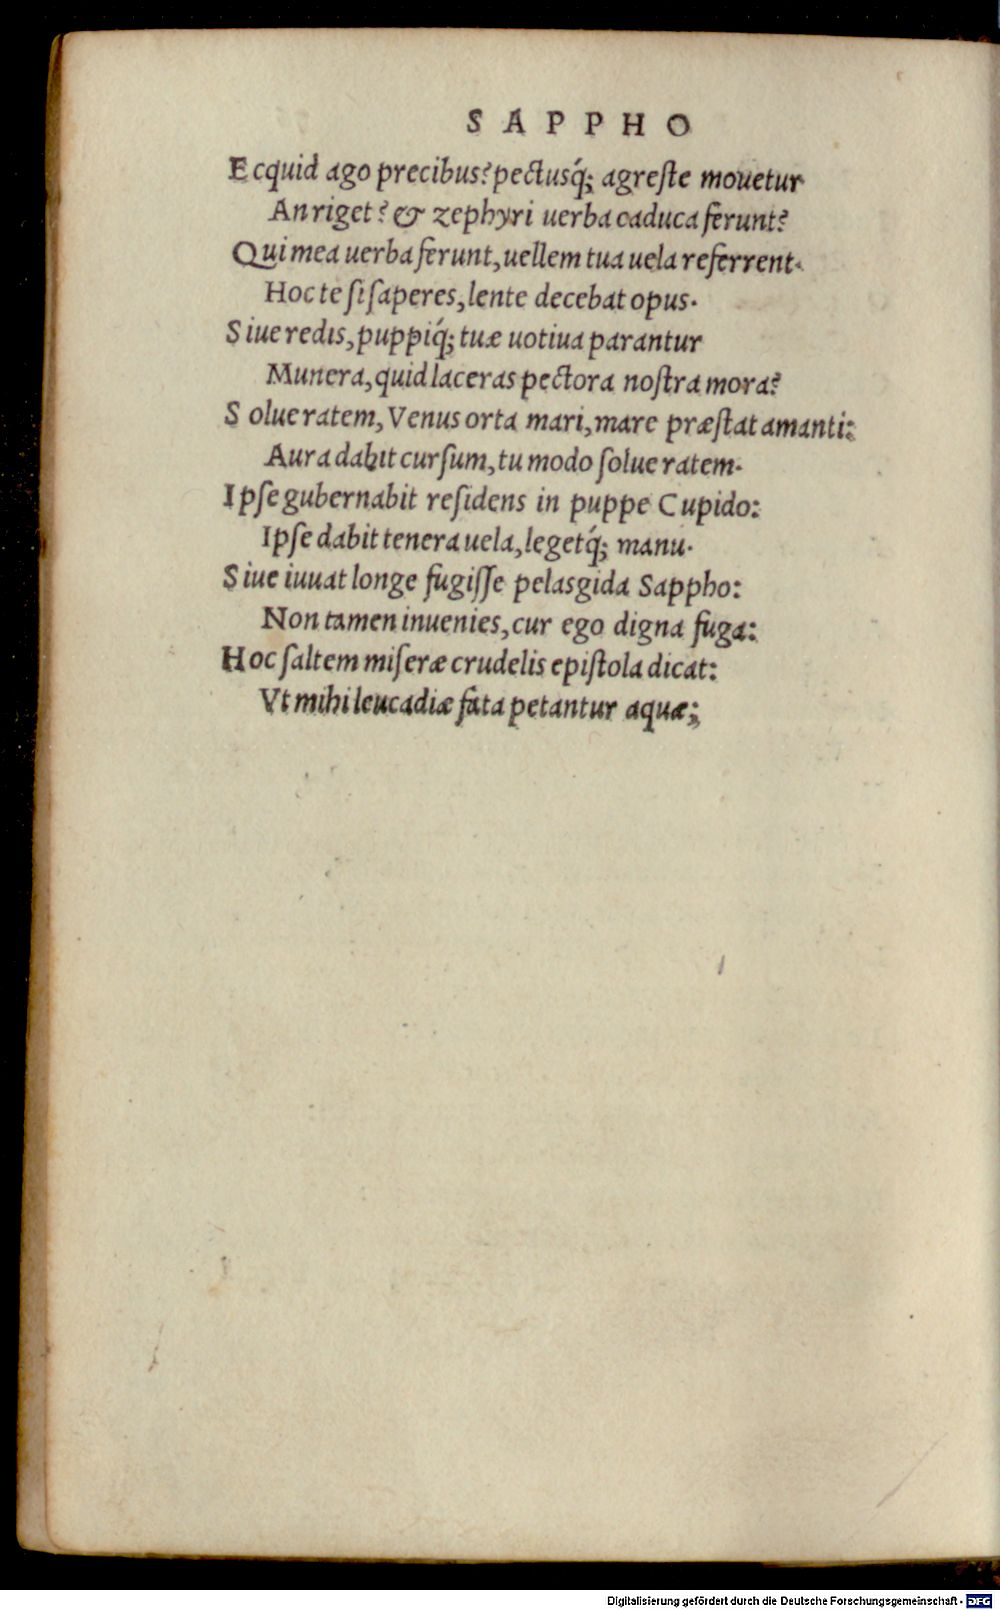 SAPPHO
Ecquid ago precibus? pectusq́; agreſte mouetur
An riget? & zephyri uerba caduca ferunt?
Qui mea uerba ferunt, uellem tua uela referrent.
Hoc te ſi ſaperes, lente decebat opus.
Siue redis, puppiq́; tuæ uotiua parantur
Munera, quid laceras pectora noſtra mora?
Solue ratem, Venus orta mari, mare præſtat amanti:
Aura dabit curſum, tu modo ſolue ratem.
Ipſe gubernabit reſidens in puppe Cupido:
Ipſe dabit tenera uela, legetq́; manu.
Siue iuuat longe fugiſſe pelasgida Sappho:
Non tamen inuenies, cur ego digna fuga:
Hoc ſaltem miſeræ crudelis epiſtola dicat:
Vt mihi leucadiæ fata petantur aquæ;
Digitalisierung gefördert durch die Deutsche Forschungsgemeinschaft - DFG